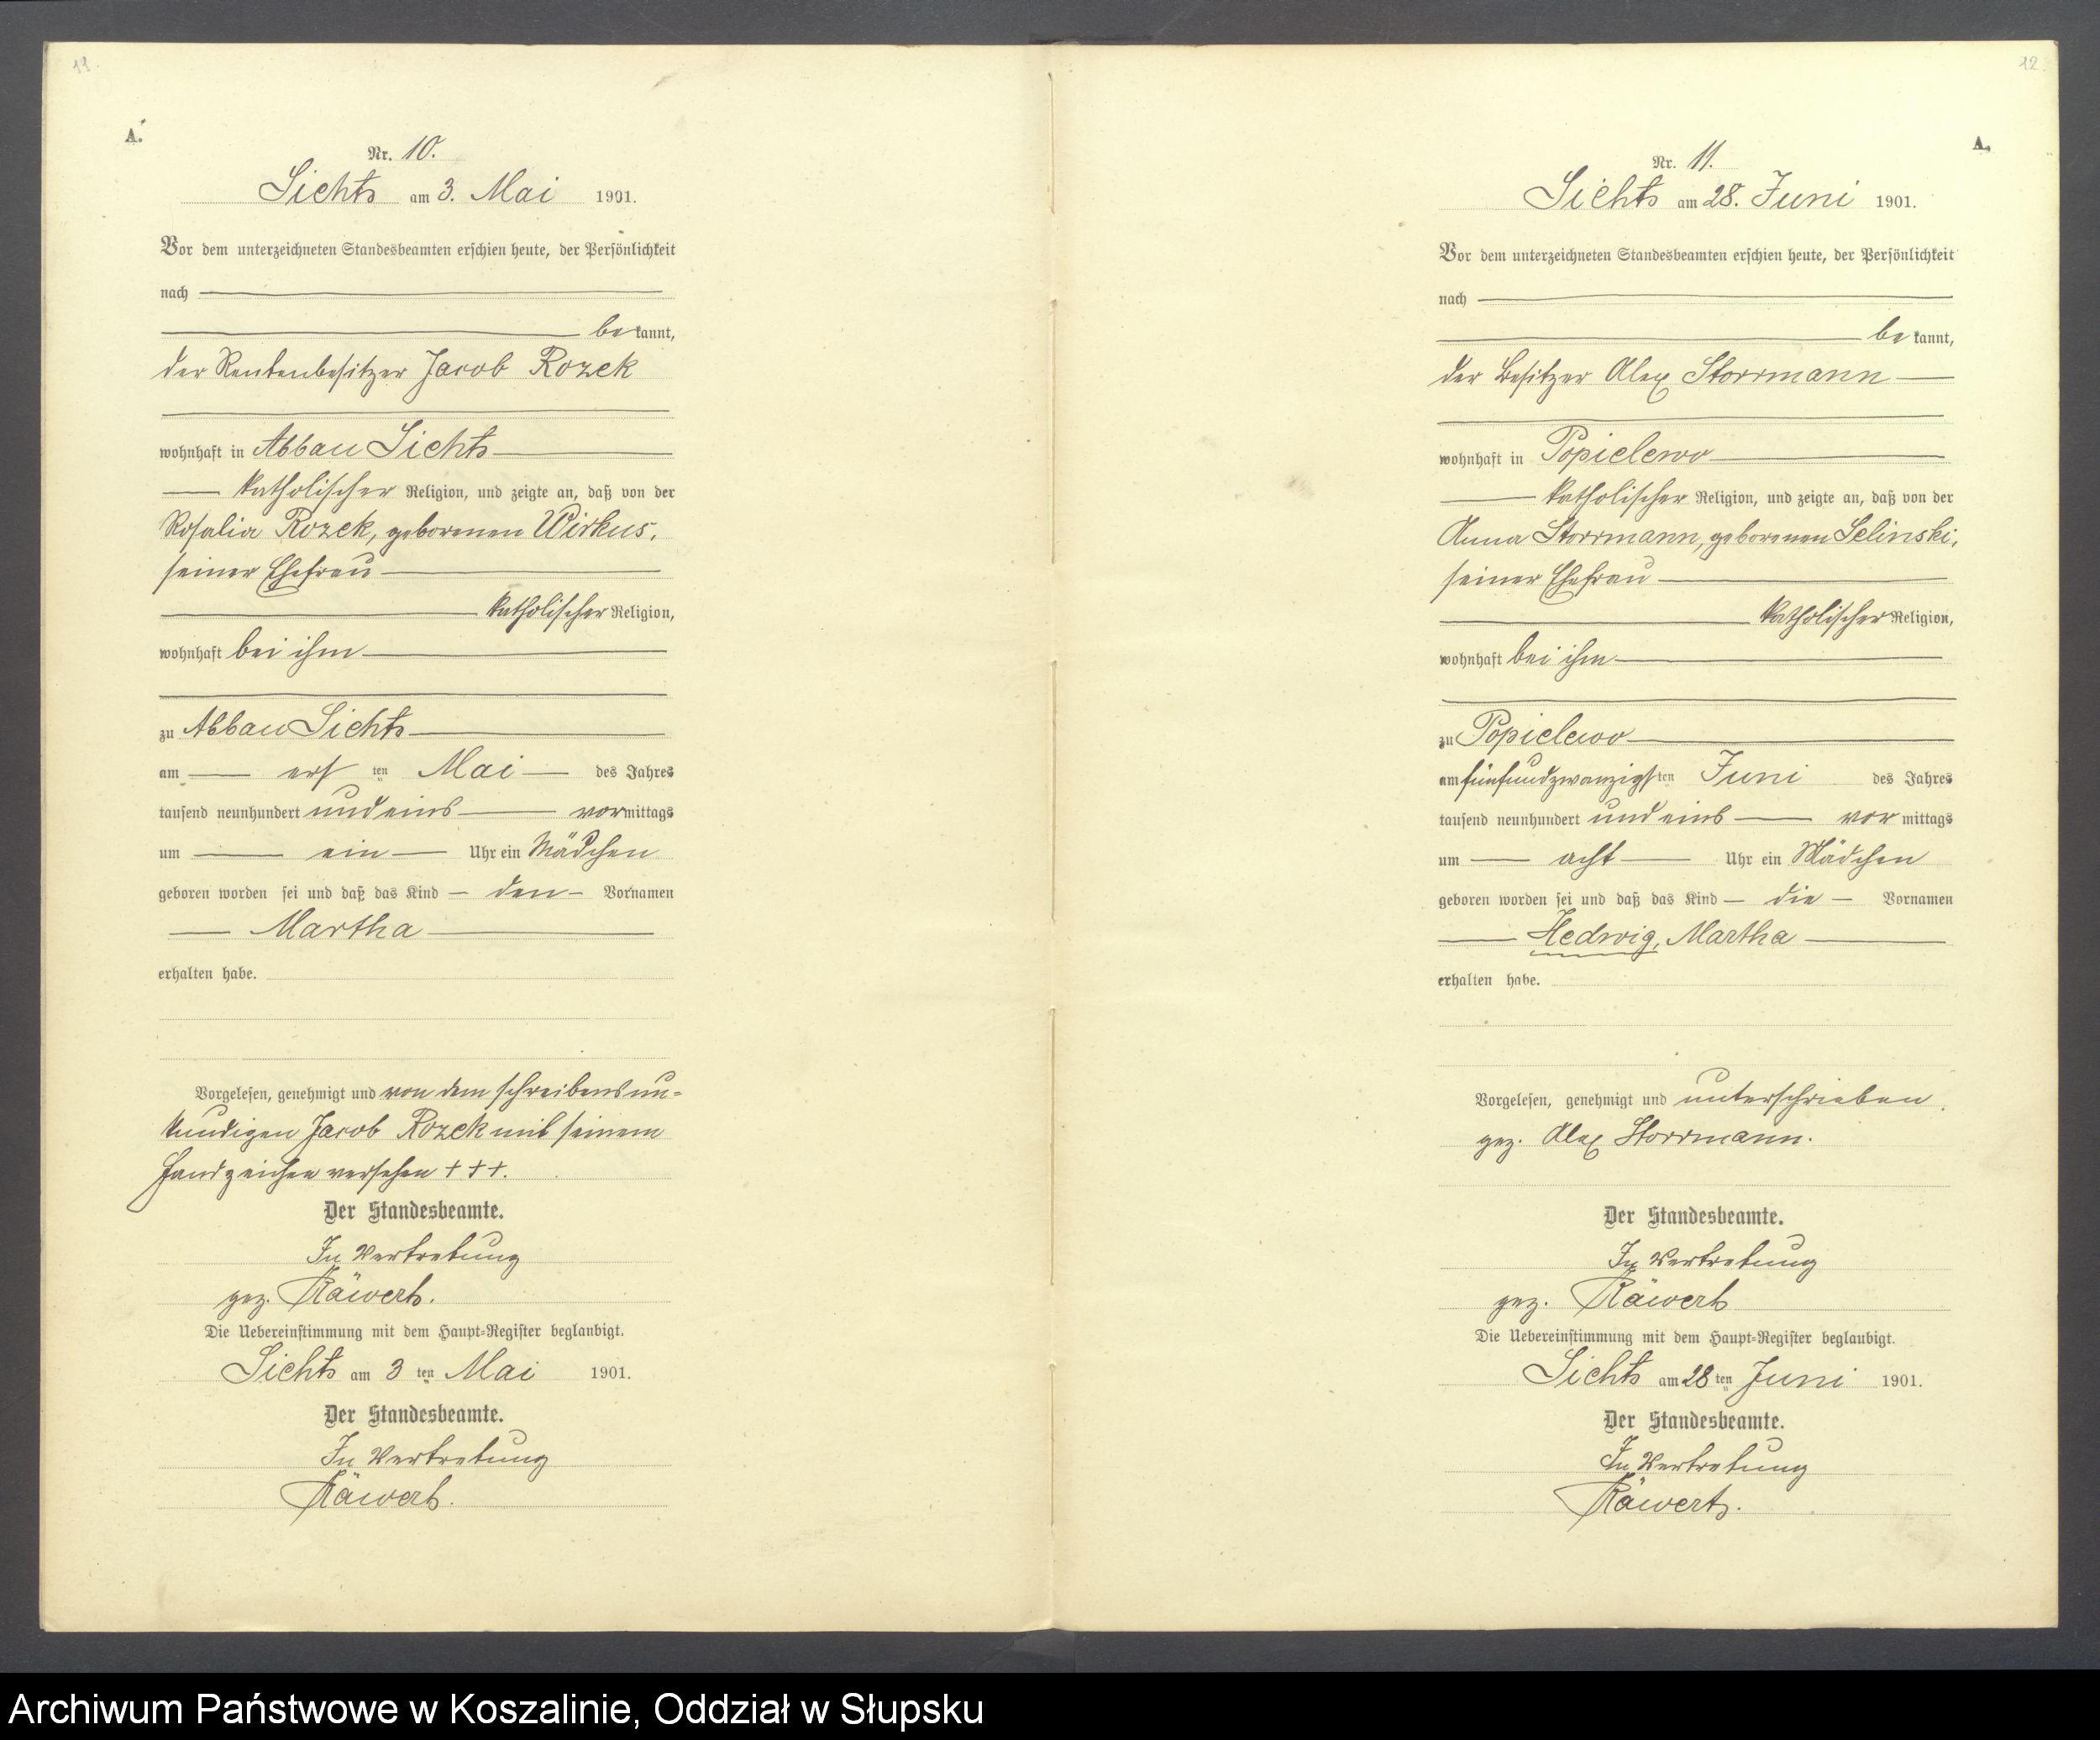 11.
A.
Nr. 10.
Lichts am 3. Mai 1901.
Vor dem unterzeichneten Standesbeamten erschien heute, der Persönlichkeit
nach
bekannt,
der Rentenbesitzer Jacob Rozek
wohnhaft in Abbau Lichts
katholischer Religion, und zeigte an, daß von der
Rosalia Rozek, geborenen Wirkus,
seiner Ehefrau
katholischer Religion,
wohnhaft bei ihm
zu Abbau Lichts
am ersten Mai des Jahres
tausend neunhundert und eins vormittags
um ein Uhr ein Mädchen
geboren worden sei und daß das Kind den Vornamen
Martha
erhalten habe.
Vorgelesen, genehmigt und von dem schreibensun-
kundigen Jacob Rozek mit seinem
Handzeichen versehen +++.
Der Standesbeamte.
In Vertretung
gez. Räwerts.
Die Uebereinstimmung mit dem Haupt-Register beglaubigt.
Lichts am 3ten Mai 1901.
Der Standesbeamte.
In Vertretung
Räwerts.
12.
A.
Nr. 11.
Lichts am 28. Juni 1901.
Vor dem unterzeichneten Standesbeamten erschien heute, der Persönlichkeit
nach
bekannt,
der Besitzer Alex Storrmann
wohnhaft in Popielewo
katholischer Religion, und zeigte an, daß von der
Anna Storrmann, geborenen Selinski,
seiner Ehefrau
katholischer Religion,
wohnhaft bei ihm
zu Popielewo
am fünfundzwanzigsten Juni des Jahres
tausend neunhundert und eins vormittags
um acht Uhr ein Mädchen
geboren worden sei und daß das Kind die Vornamen
Hedwig, Martha
erhalten habe.
Vorgelesen, genehmigt und unterschrieben.
gez. Alex Storrmann.
Der Standesbeamte.
In Vertretung
gez. Räwerts
Die Uebereinstimmung mit dem Haupt-Register beglaubigt.
Lichts am 28ten Juni 1901.
Der Standesbeamte.
In Vertretung
Räwerts.
Archiwum Państwowe w Koszalinie, Oddział w Słupsku